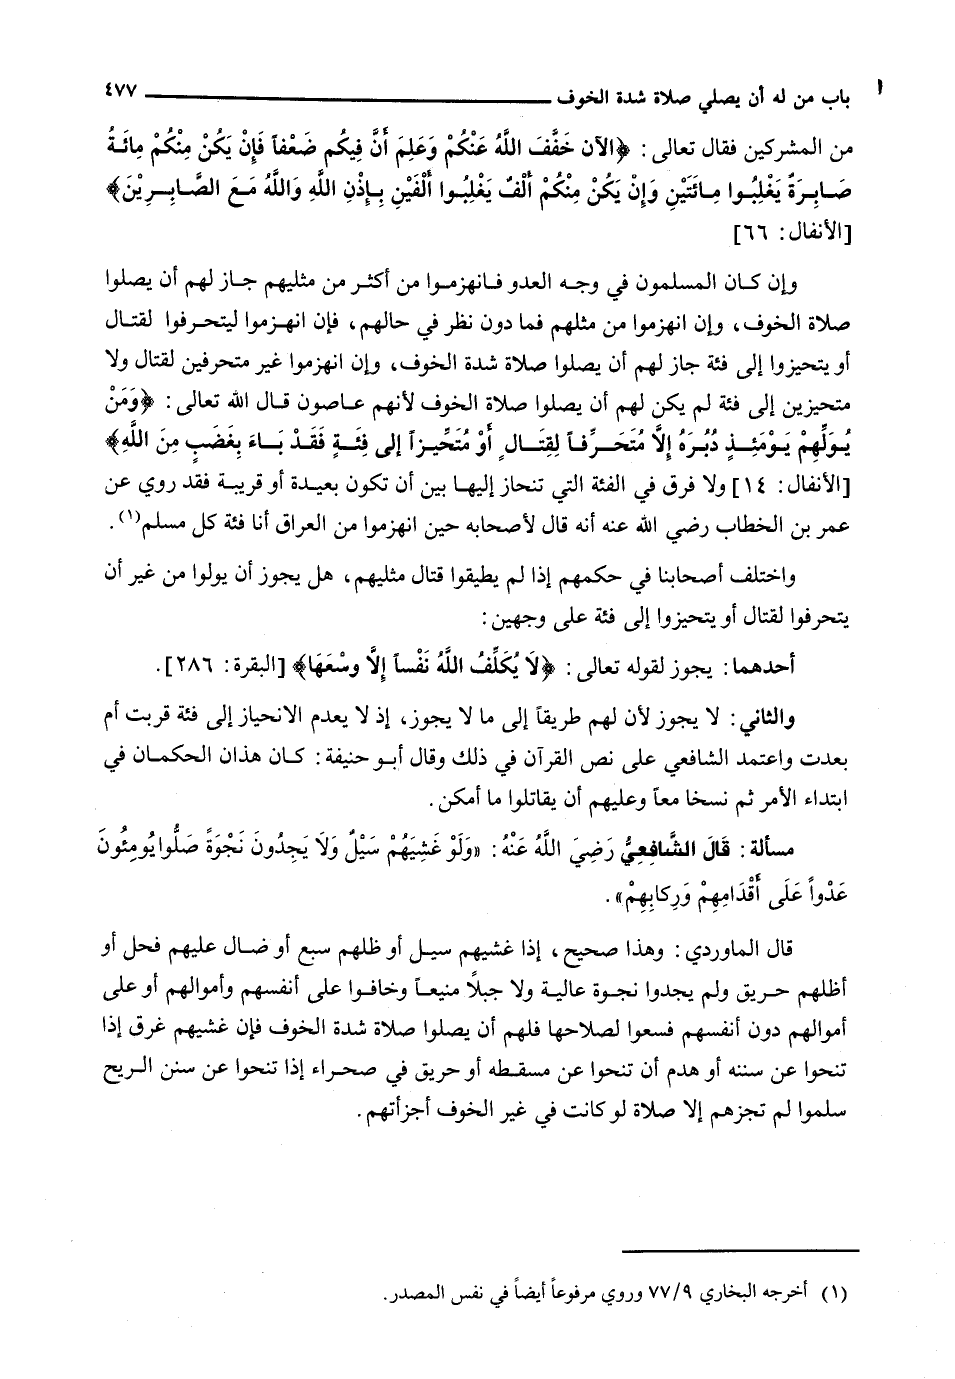 باب من له أن يصلي صلاة شدة الخوف ٤٧٧
من المشركين فقال تعالى: ﴿الآن خَفَّفَ اللَّهُ عَنْكُمْ وَعَلِمَ أَنَّ فِيكُم ضَعْفاً فَإِنْ يَكُنْ مِنْكُمْ مِائَةٌ
صَابِرَةٌ يَغْلِبُوا مِائَتَيْنِ وَإِنْ يَكُنْ مِنْكُمْ أَلْفٌ يَغْلِبُوا أَلْفَيْنِ بِإِذْنِ اللَّهِ وَاللَّهُ مَعَ الصَّابِرِيْنَ﴾
[الأنفال: ٦٦]
وإن كان المسلمون في وجه العدو فانهزموا من أكثر من مثليهم جاز لهم أن يصلوا
صلاة الخوف، وإن انهزموا من مثلهم فما دون نظر في حالهم، فإن انهزموا ليتحرفوا لقتال
أو يتحيزوا إلى فئة جاز لهم أن يصلوا صلاة شدة الخوف، وإن انهزموا غير متحرفين لقتال ولا
متحيزين إلى فئة لم يكن لهم أن يصلوا صلاة الخوف لأنهم عاصون قال الله تعالى: ﴿وَمَنْ
يُوَلِّهِمْ يَوْمَئِذٍ دُبُرَهُ إِلَّا مُتَحَرِّفاً لِقِتَالٍ أَوْ مُتَحِّيزاً إلى فِئَةٍ فَقَدْ بَاءَ بِغَضَبٍ مِنَ اللَّهِ﴾
[الأنفال: ١٤] ولا فرق في الفئة التي تنحاز إليها بين أن تكون بعيدة أو قريبة فقد روي عن
عمر بن الخطاب رضي الله عنه أنه قال لأصحابه حين انهزموا من العراق أنا فئة كل مسلم(١).
واختلف أصحابنا في حكمهم إذا لم يطيقوا قتال مثليهم، هل يجوز أن يولوا من غير أن
يتحرفوا لقتال أو يتحيزوا إلى فئة على وجهين:
أحدهما: يجوز لقوله تعالى: ﴿لَا يُكَلِّفُ اللَّهُ نَفْساً إِلَّا وسْعَهَا﴾ [البقرة: ٢٨٦].
والثاني: لا يجوز لأن لهم طريقاً إلى ما لا يجوز، إذ لا يعدم الانحياز إلى فئة قربت أم
بعدت واعتمد الشافعي على نص القرآن في ذلك وقال أبو حنيفة: كان هذان الحكمان في
ابتداء الأمر ثم نسخا معاً وعليهم أن يقاتلوا ما أمكن.
مسألة: قَالَ الشَّافِعِيُّ رَضِيَ اللَّهُ عَنْهُ: «وَلَوْ غَشِيَهُمْ سَيْلٌ وَلَا يَجِدُونَ نَجْوَةً صَلُّوا يُومِئُونَ
عَدْواً عَلَى أَقْدَامِهِمْ وَرِكابِهِمْ».
قال الماوردي: وهذا صحيح، إذا غشيهم سيل أو ظلهم سبع أو ضال عليهم فحل أو
أظلهم حريق ولم يجدوا نجوة عالية ولا جبلاً منيعاً وخافوا على أنفسهم وأموالهم أو على
أموالهم دون أنفسهم فسعوا لصلاحها فلهم أن يصلوا صلاة شدة الخوف فإن غشيهم غرق إذا
تنحوا عن سننه أو هدم أن تنحوا عن مسقطه أو حريق في صحراء إذا تنحوا عن سنن الريح
سلموا لم تجزهم إلا صلاة لو كانت في غير الخوف أجزأتهم.
(١) أخرجه البخاري ٧٧/٩ وروي مرفوعاً أيضاً في نفس المصدر.